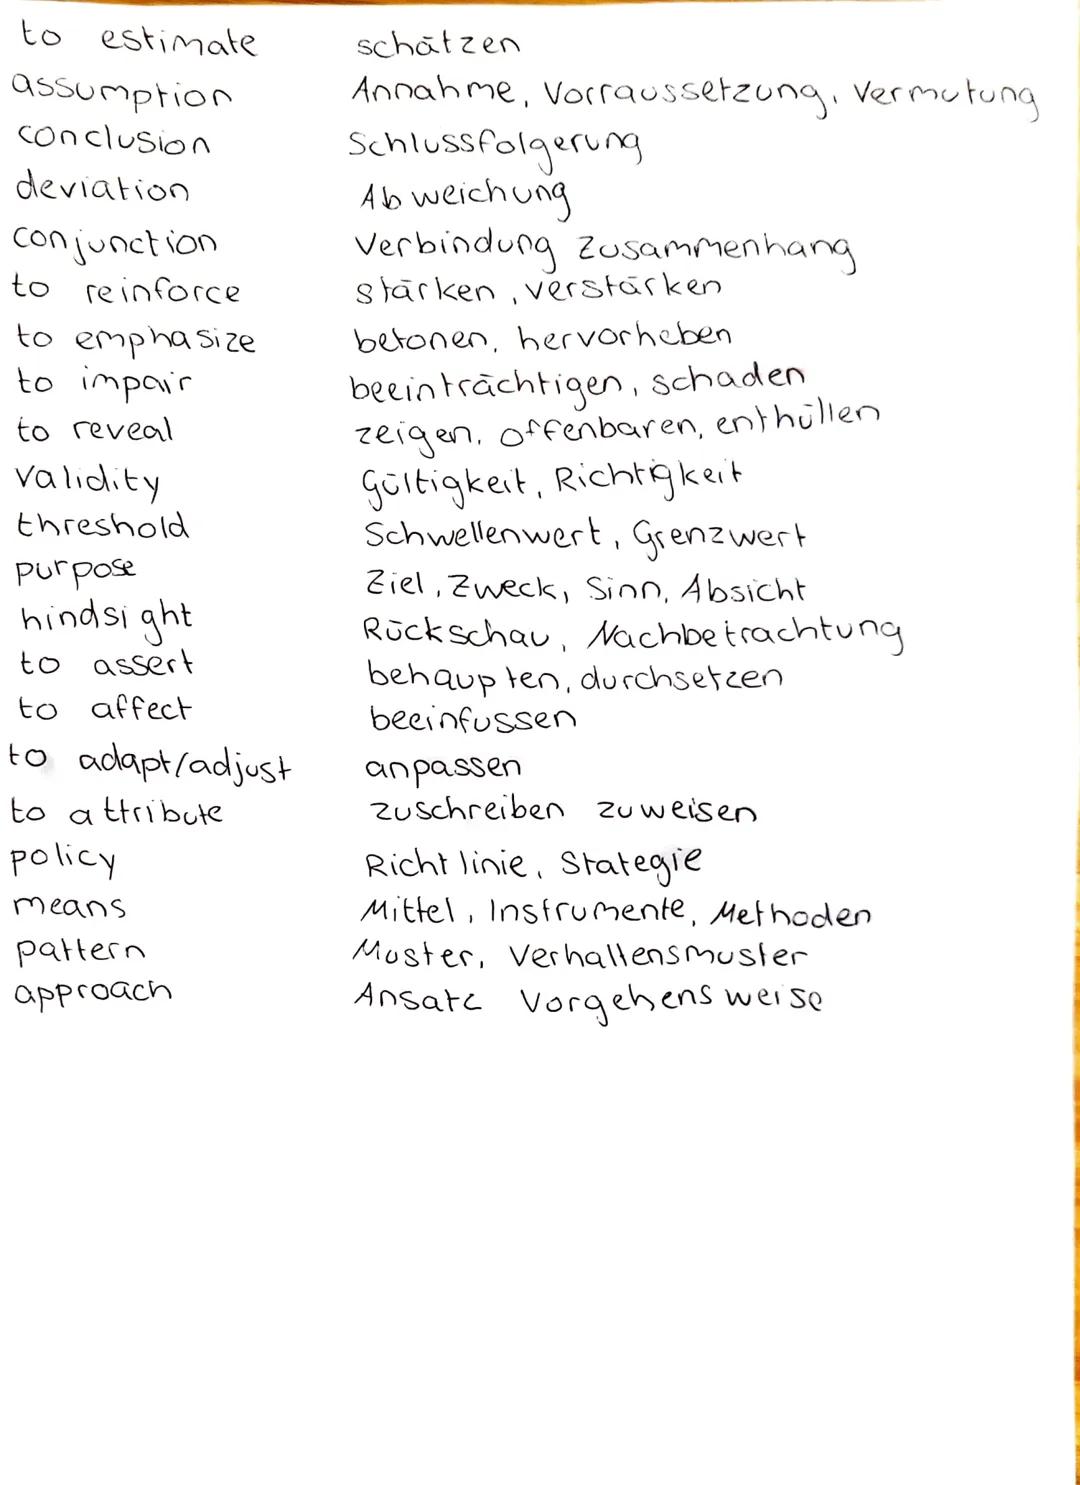 to estimate schätzen
assumption Annahme, Vorraussetzung, Vermutung
conclusion Schlussfolgerung
deviation Abweichung
conjunction Verbindung Zusammenhang
to reinforce stärken, verstärken
to emphasize betonen, hervorheben
to impair beeinträchtigen, schaden
to reveal zeigen, offenbaren, enthüllen
validity Gültigkeit, Richtigkeit
threshold Schwellenwert, Grenzwert
purpose Ziel, Zweck, Sinn, Absicht
hindsight Rückschau, Nachbetrachtung
to assert behaupten, durchsetzen
to affect beeinfussen
to adapt/adjust anpassen
to attribute zuschreiben zuweisen
policy Richtlinie, Stategie
means Mittel, Instrumente, Methoden
pattern Muster, Verhaltensmuster
approach Ansatz Vorgehensweise